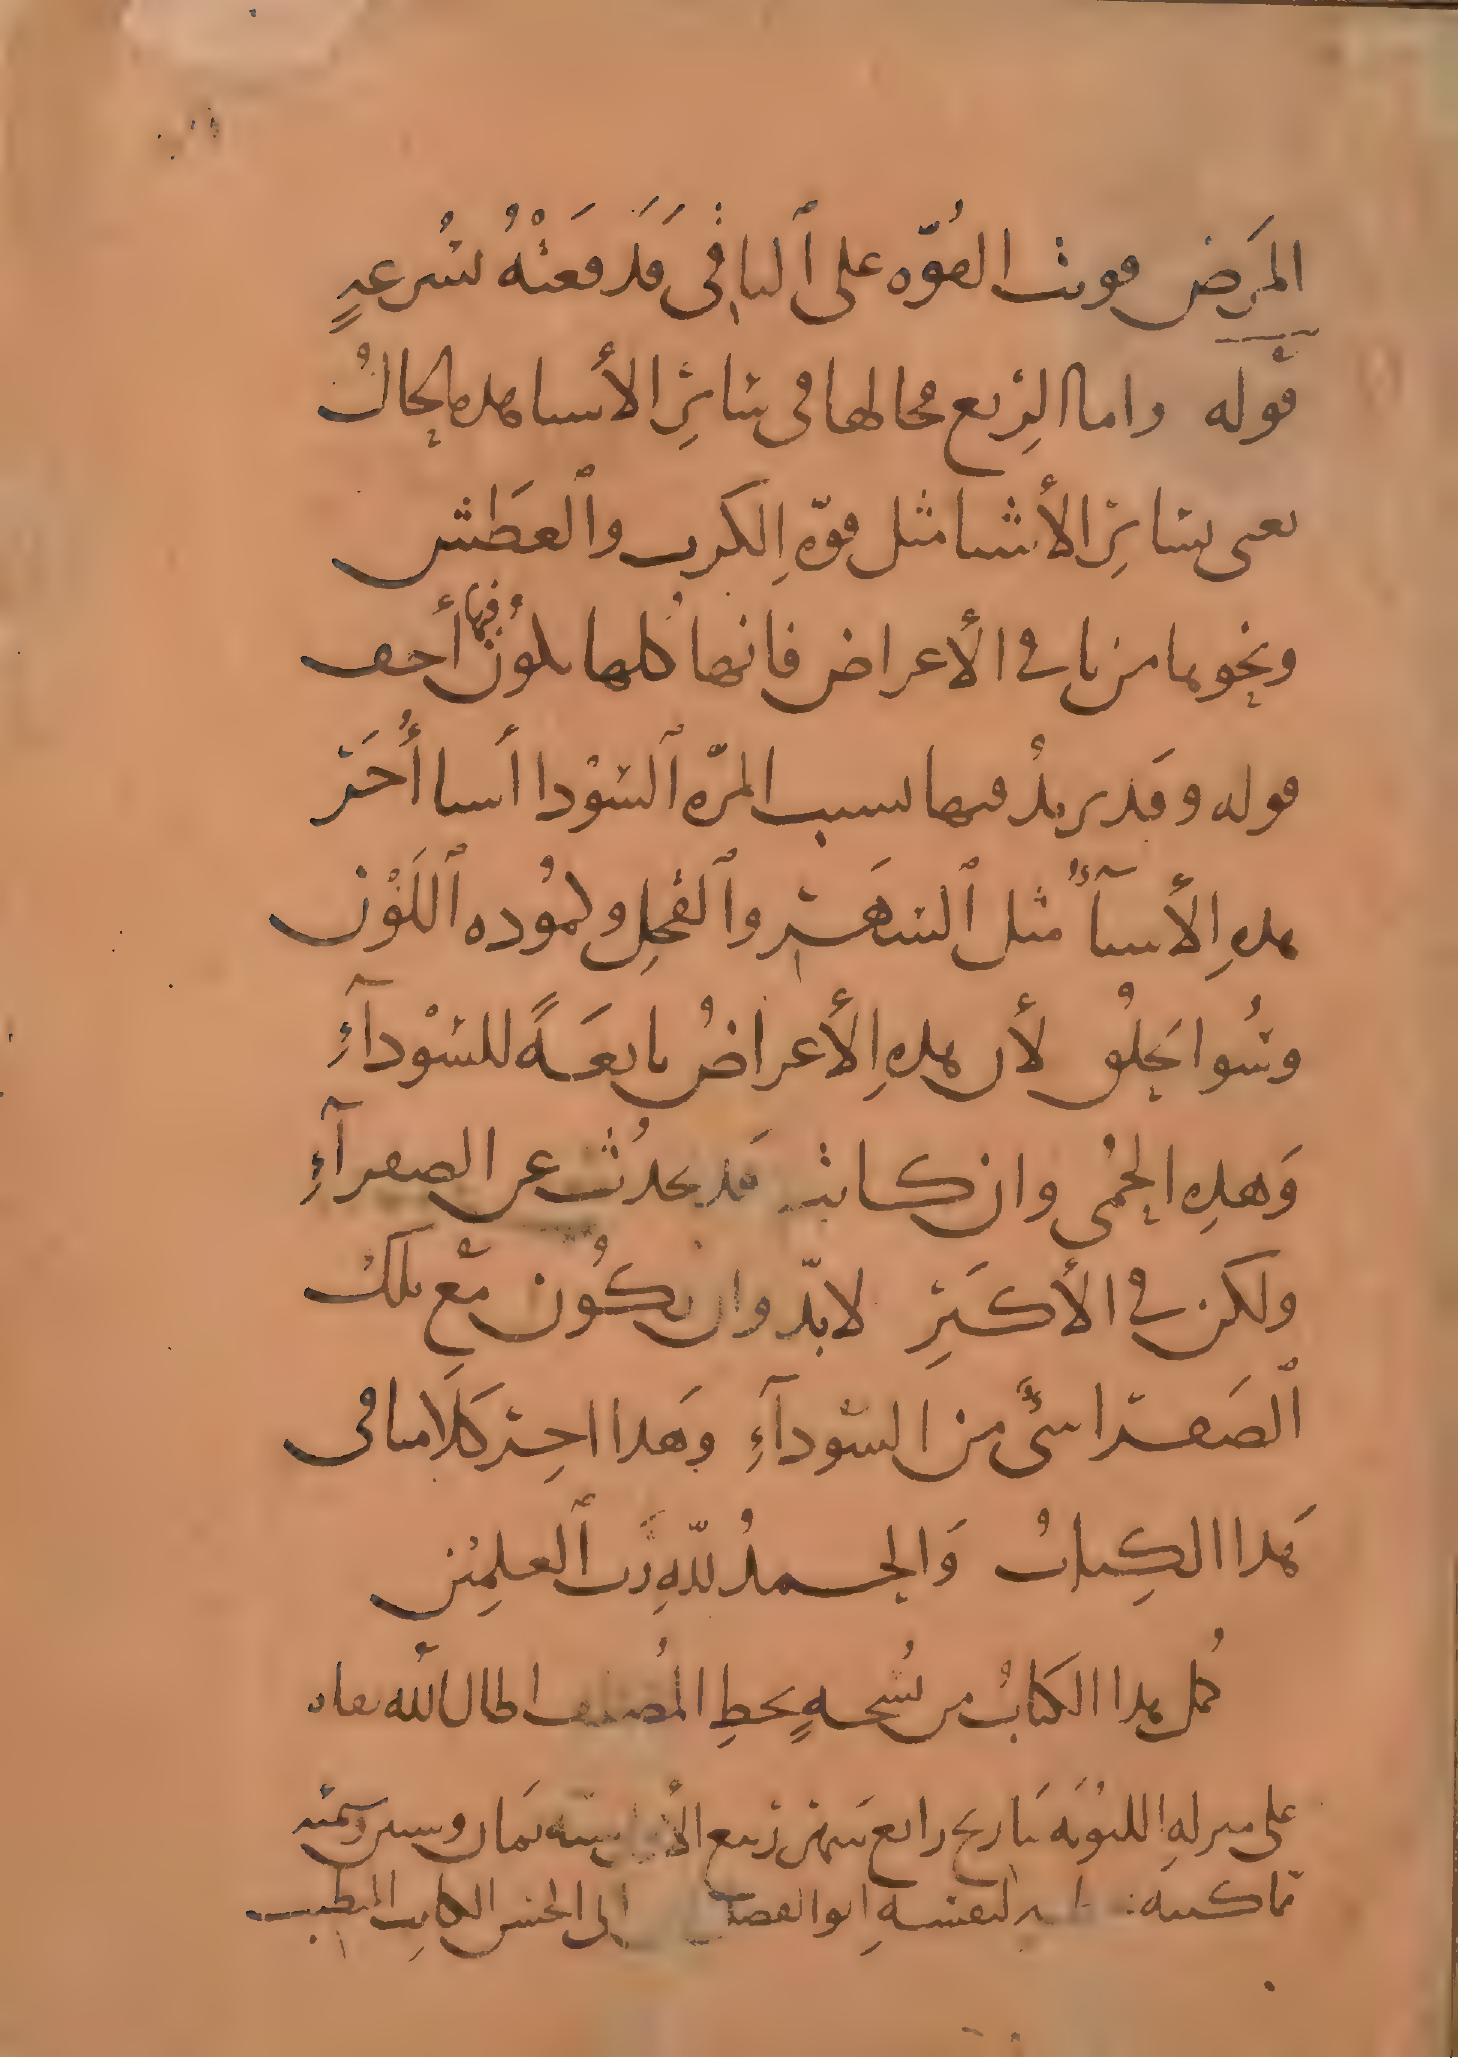 المَرَض قويت القُوّه على ٱلباقي فَدَفَعَتْهُ بسُرعهٍ
قوله واما الرِبع فحالها في سَائِر الأسيا هده الحالُ
يعنى بسَائِر الأشيا مثل قوّهِ الكرب والعَطَش
ونحوهما من باقي الأعراض فانها كلها تكوُن فيها أخف
قوله وقد يريدُ فيها بسبب المرّه ٱلسَوْدا أسيا أُخَر
هدهِ الأسيآءُ مثل ٱلسَهَر وٱلقَحَلِ وكمُوده ٱللَوْن
وسُوا الخلُق لأن هدهِ الأعراضُ تابعَةً للسَوْدآءِ
وَهدهِ الحُمى وان كانت قد تحدُث عن الصفرآءِ
ولكن في الأكثَرِ لا بدّ وان يكُون مَع تلك
ٱلصَفرا سىٌ من السَّودآءِ وهَدا اخِر كلَامنا في
هَدا الكِتابُ وَالحمدُ للّهِ رَبّ ٱلعلمِين
كمُل هدا الكتابُ من نُسخهٍ بخطِ المُصنف اطال اللّه بقاه
على ميزلهِ الليوبَه بتاريخ رابع سَهر رَبيع الأول سنَه ثمَان وسين وخمسمئه
ممّا كتبه لنفسهِ ابو الفضل ابى الحسن الكاتِب المتطبب